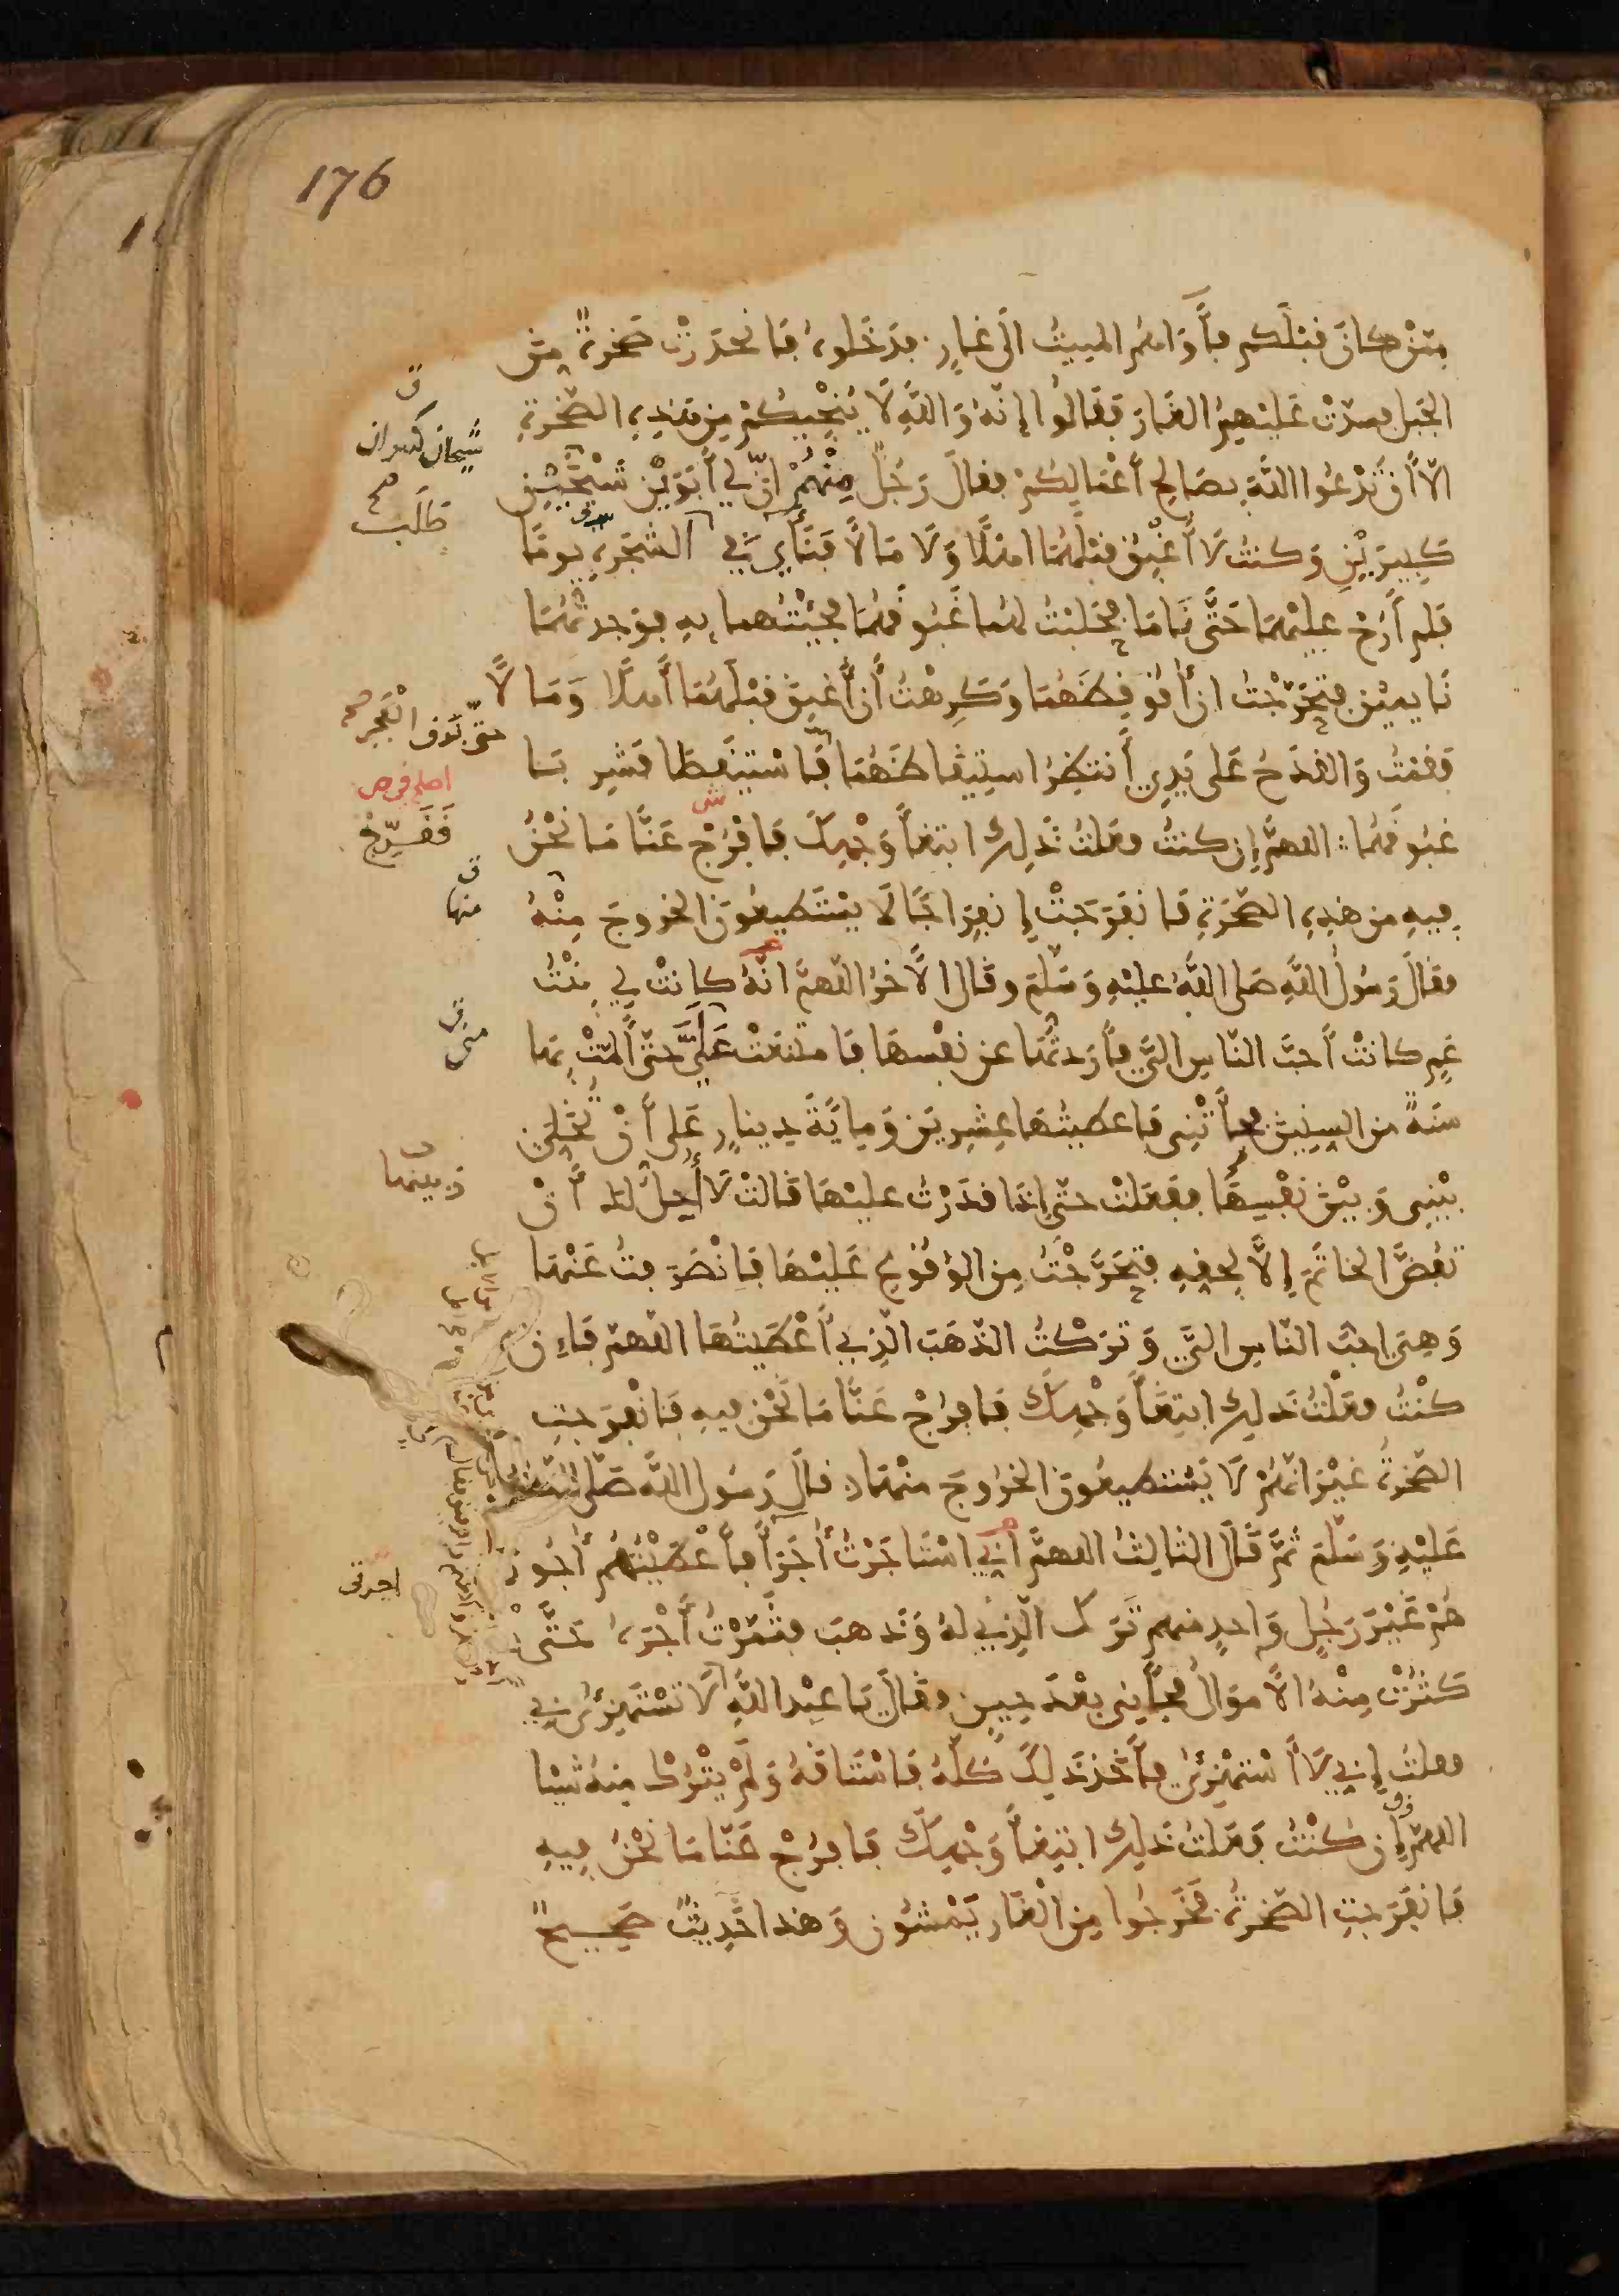 176
ممّن كان قبلكم فأواهم المبيت الى غار فدخلوه فانحدرت صخرة من
الجبل فسدّت عليهم الغار فقالوا إنّه والله لا ينجيكم من هذه الصّخرة
الّا أن تدعوا الله بصالح أعمالكم فقال رجل منهم انّي لي أبوين شيخين
كبيرين وكنت لا أغبق قبلهما اهلًا ولا مالًا فنأى بي الشجر يومًا
فلم أرح عليهما حتّى ناما فحلبت لهما غبوقهما فجئتهما به فوجدتهما
نايمين فتحرّجت ان أوقظهما وكرهت أن أغبق قبلهما أهلًا ومالًا
فقمت والقدح على يدي أنتظر استيقاظهما فاستيقظا فشربا
غبوقهما اللهمّ إن كنت فعلت ذلك ابتغاء وجهك فافرج عنّا ما نحن
فيه من هذه الصّخرة فانفرجت إنفراجًا لا يستطيعون الخروج منه
فقال رسول الله صلى الله عليه وسلّم وقال الآخر اللّهمّ انّه كانت لي بنت
عم كانت أحبّ النّاس اليّ فأردتّها عن نفسها فامتنعت عليّ حتّى ألمّت بها
سنة من السنين فجأتني فاعطيتها عشرين ومايّة دينار على أن تخلي
بيني وبين نفسها ففعلت حتّى إذا قدرت عليها قالت لا أحلّ لك أن
تفضّ الخاتم إلّا بحقه فتحرّجت من الوقوع عليها فانصرفت عنها
وهي احبّ النّاس اليّ وتركت الذّهب الّذي أعطيتها اللهمّ فإن
كنت فعلت ذلك ابتغاء وجهك فافرج عنّا ما نحن فيه فانفرجت
الصّخرة غير انّهم لا يستطيعون الخروج منها قال رسول الله صلّى الله
عليه وسلّم ثمّ قال الثالث اللهمّ اني استاجرت أجرأ فأعطيتهم أجور
هم غير رجل واحد منهم ترك الّذي له وذهب فثمّرت أجره حتّى
كثرت منه الأموال فجأني بعد حين فقال يا عبد الله لا تستهزئ بي
فقلت إني لا أستهزئ فأخذ ذلك كلّه فاستاقه ولم يترك منه شيا
اللهمّ إن كنت فعلت ذلك ابتغاء وجهك فافرج عنّا ما نحن فيه
فانفرجت الصّخرة فخرجوا من الغار يمشون وهذا حديث صحيح
شيخان كبيران
طلب
حتّى برق الفجر
ففرّج
منها
منى
اجرتى